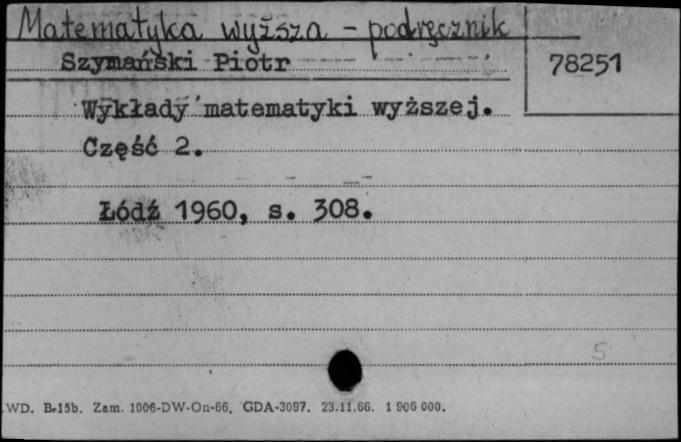 Matematyka wyższa - podręcznik
Szymański Piotr
78251
Wykłady matematyki wyższej.
Część 2.
Łódź 1960, s. 308.
5
WD. B-15b. Zam. 1006-DW-On-66. GDA-3097. 23.11.66. 1 906 000.